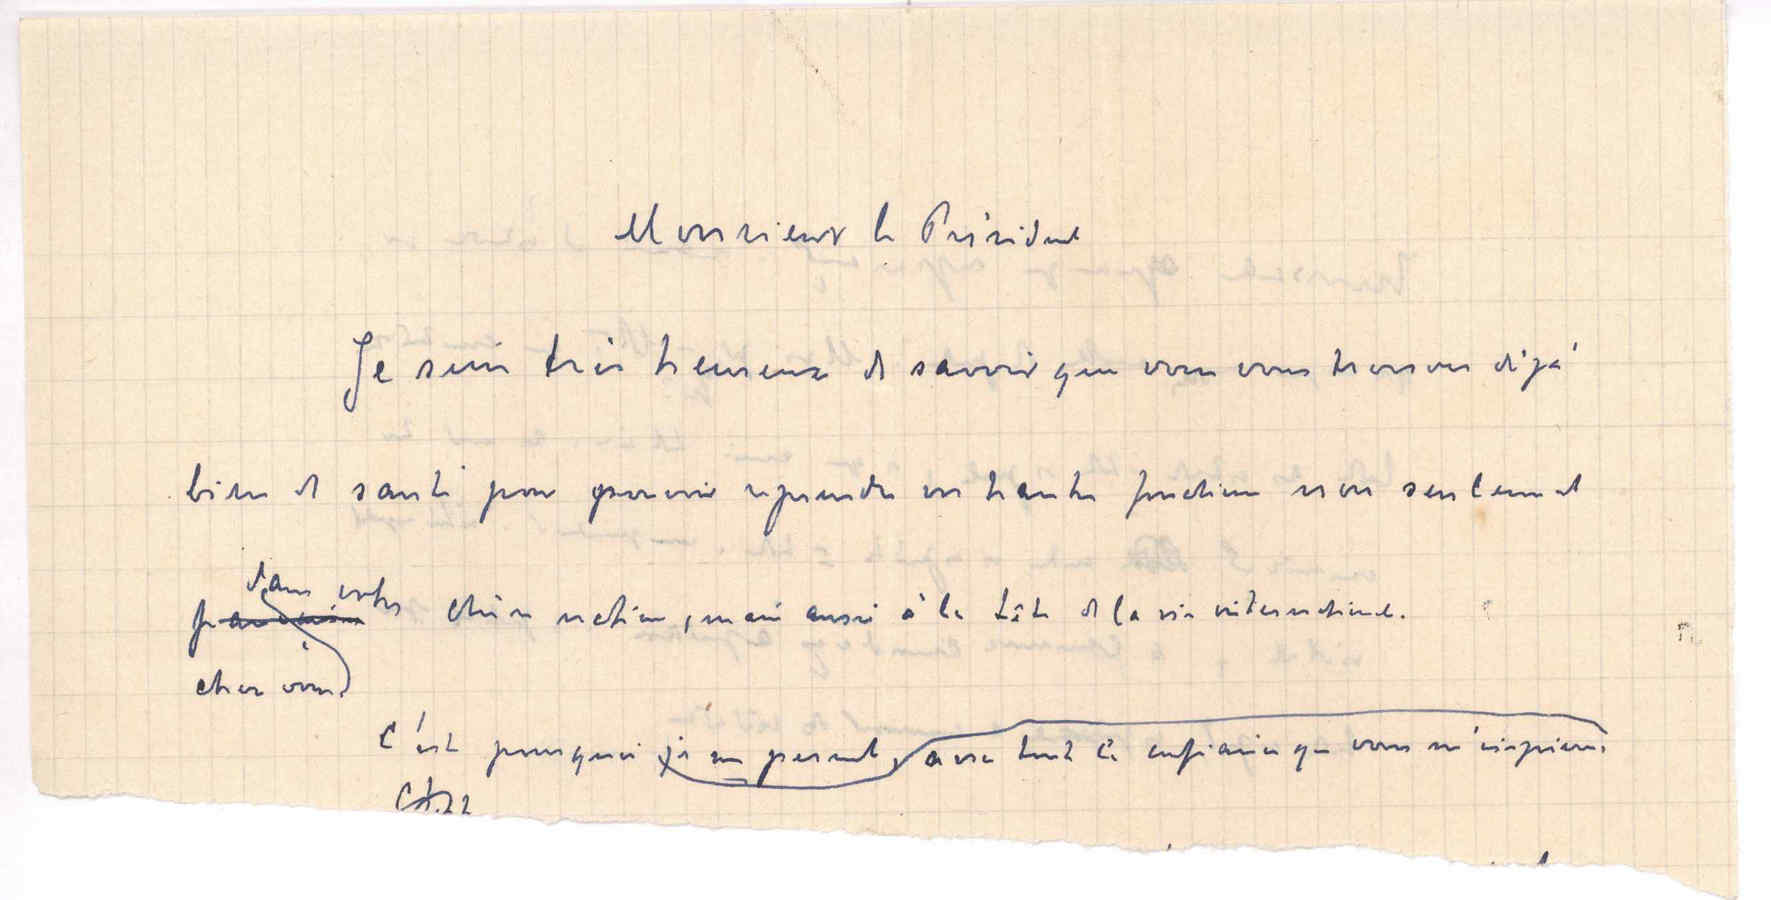 Monsieur le Président
Je suis très heureux de savoir que vous vous trouvez déjà
bien de santé pour pouvoir reprendre vos hautes fonctions non seulement
dans votre
chère nation, mais aussi à la tête de la vie internationale.
chez vous
C'est pourquoi je me permet, avec toute la confiance que vous m'inspirez